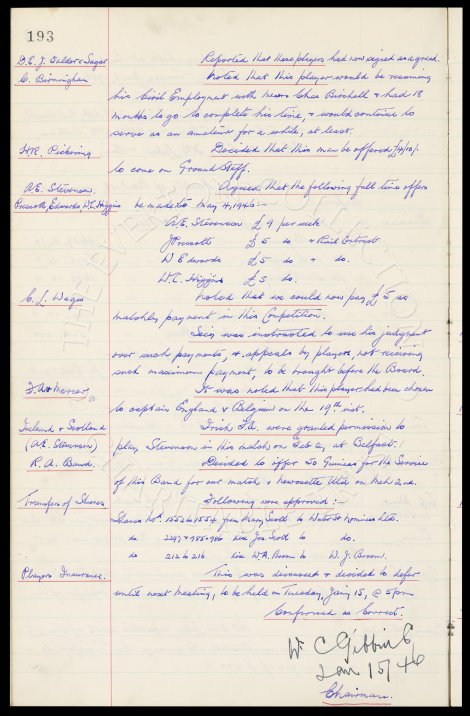 193
D.E.J. Falder & Sagar Reported that these players had now signed as agreed.
C. Birmingham Noted that this player would be resuming
his Civil Employment with Messrs Chas Birchall & had 18
months to go to complete his time, & would continue to
serve as an amateur for a while, at least.
H.R. Pickering Decided that this man be offered £4/10/-
to come on Ground Staff.
A.E. Stevenson, Agreed that the following full time offers
Prescott, Edwards, W.C. Higgins be made to May 4, 1946:-
A.E. Stevenson £9 per week
J Prescott £5 do & Rail Contract
W Edwards £5 do & do.
W.C. Higgins £3 do.
C.L. Wages Noted that we could now pay £5 as
matchly payment in this Competition.
Secy was instructed to use his judgment
over such payments, & appeals by players, not receiving
such maximum payment, to be brought before the Board.
J. A. Mercer It was noted that this player had been chosen
to captain England v Belgium on the 19th inst.
Ireland v Scotland Irish F.A. were granted permission to
(A.E. Stevenson) play Stevenson in this match on Feb 2, at Belfast.
R.A. Band. Decided to offer 50 Guineas for the Service
of this Band for our match v Newcastle Utd on Mch 2nd.
Transfers of Shares Following were approved:-
Shares Nos. 1552 to 1554 from Mary Scott to Water St Nominees Ltd.
do 2297 & 985/986 Exix Jas. Scott to do.
do 212 to 216 Exix W.A. Broom to W. J. Broom.
Players Insurance. This was discussed & decided to defer
until next meeting, to be held on Tuesday, Jany 15, @ 5 pm
Confirmed as Correct.
W C Gibbins
Jan 15/46
Chairman.
THE EVERTON COLLECTION